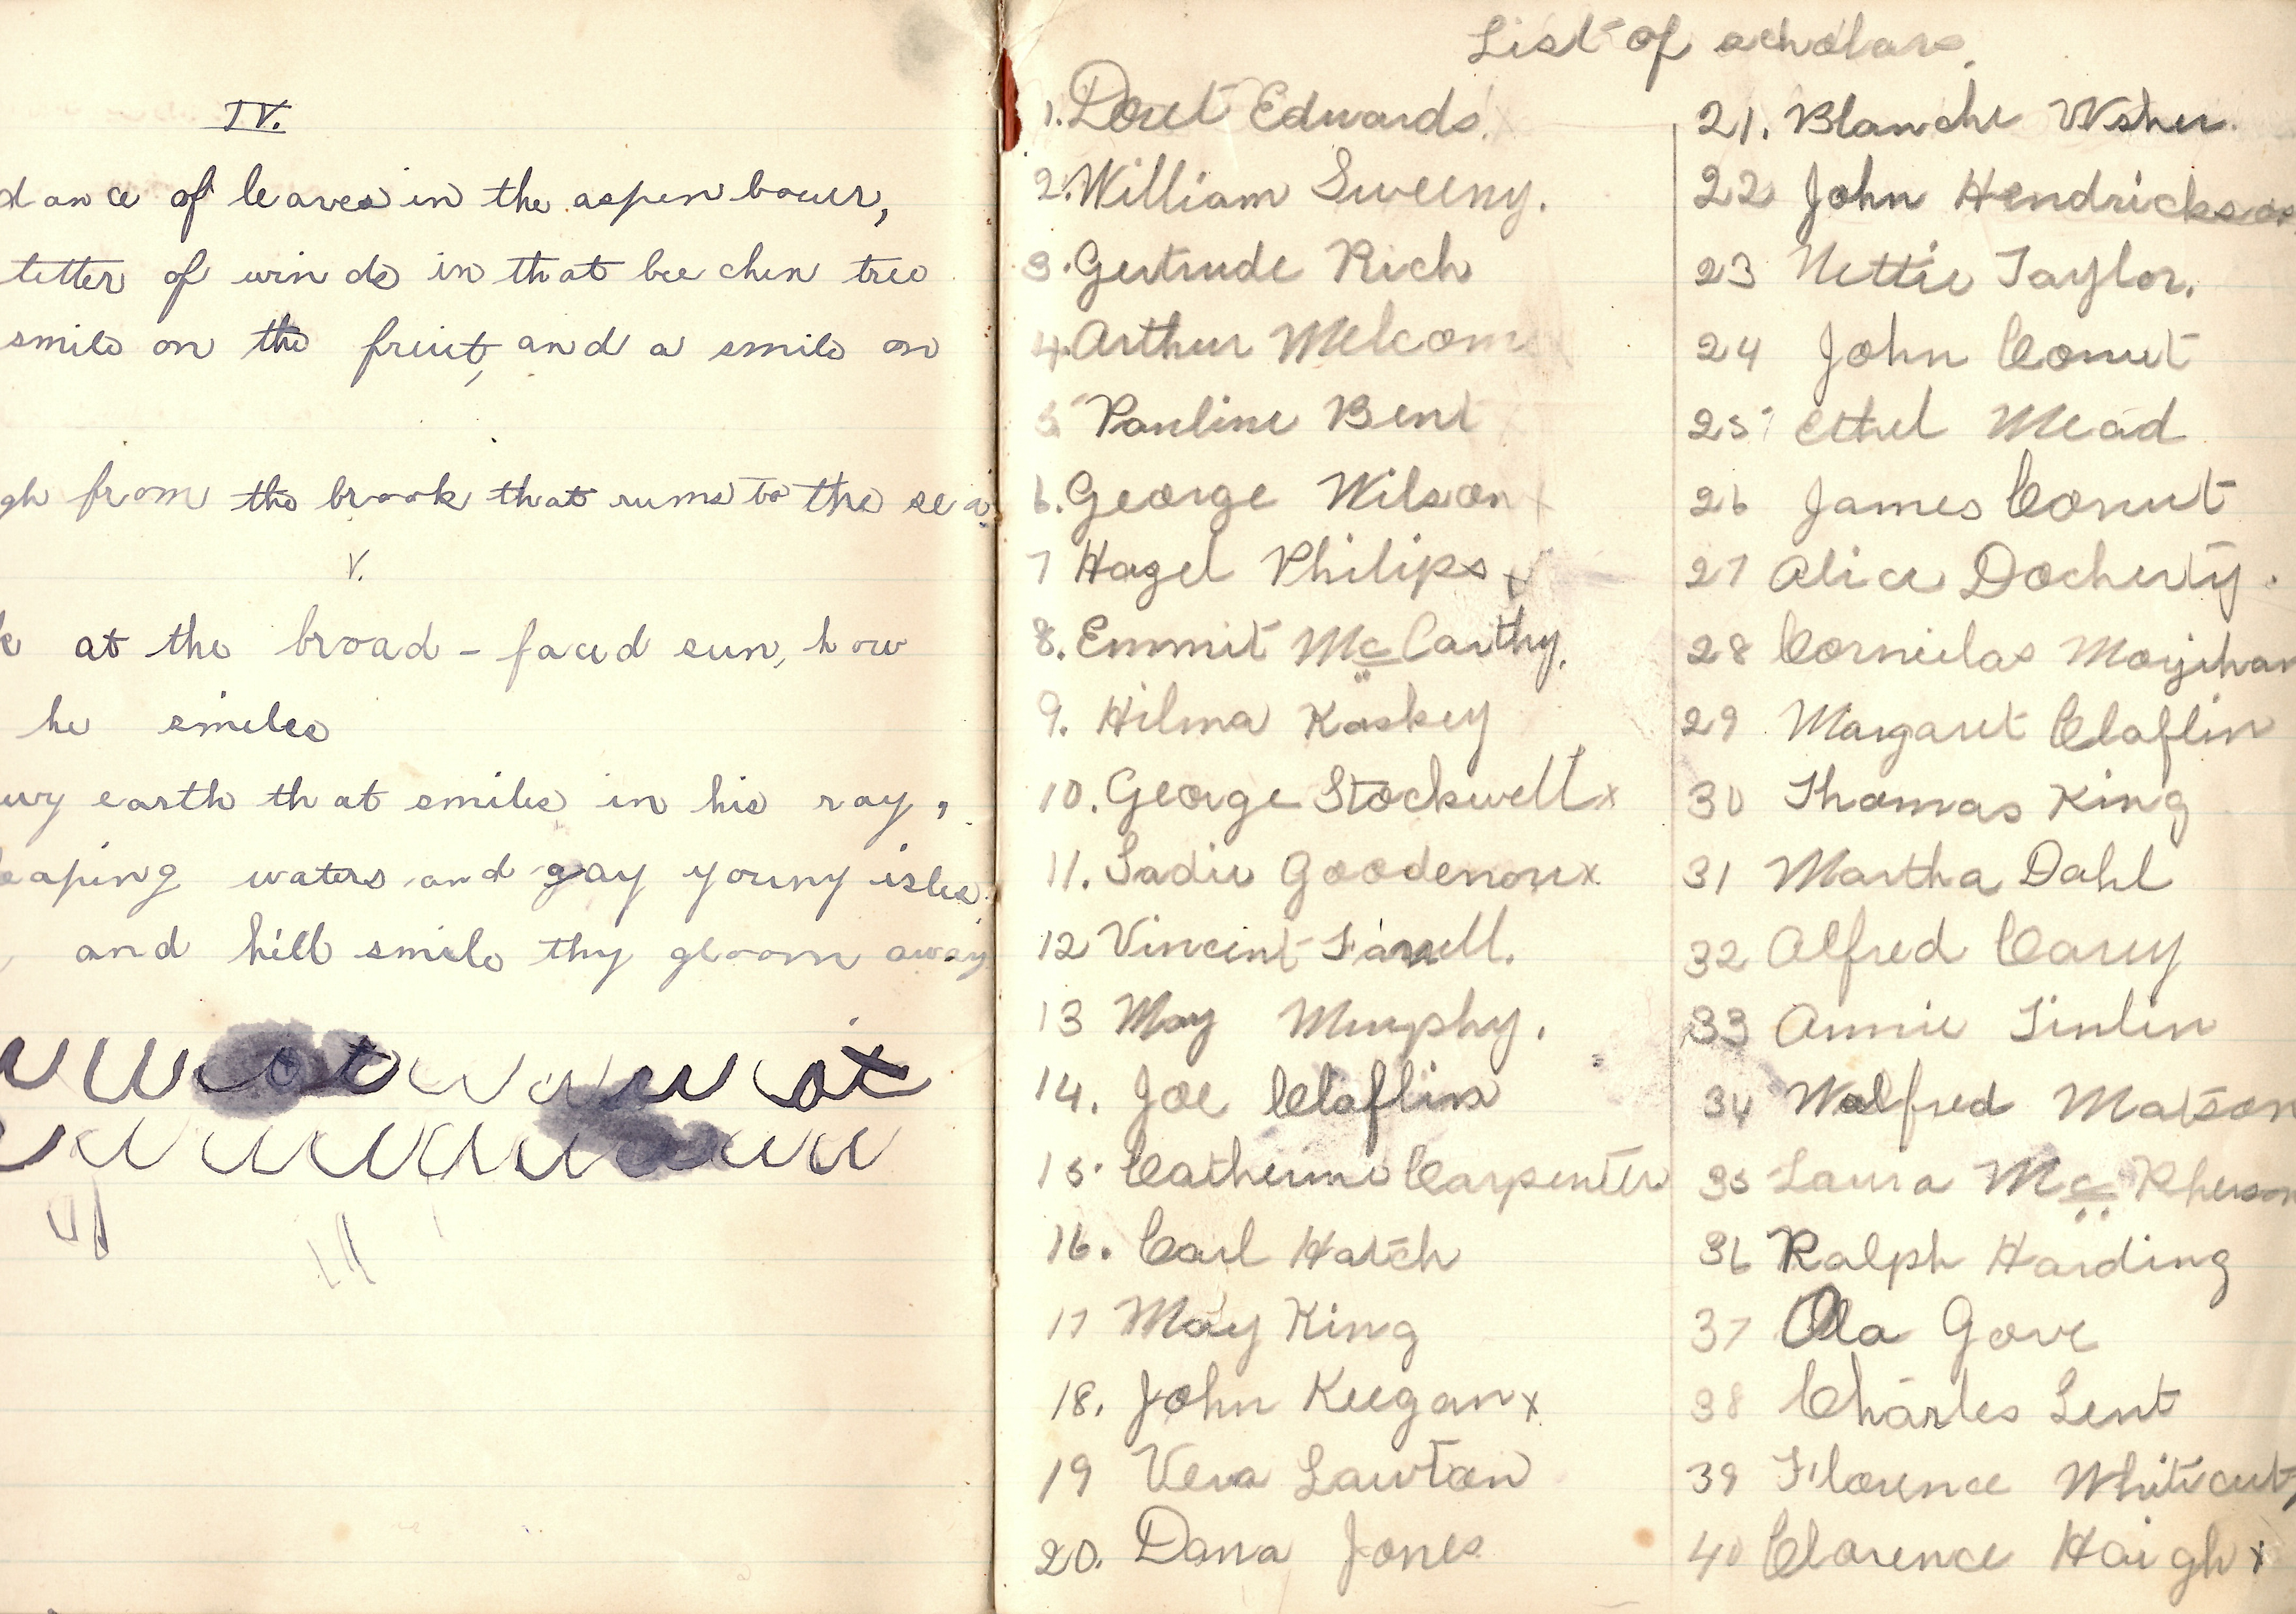 IV.
dance of leaves in the aspen bower,
titter of winds in that beechen tree
smile on the fruit, and a smile on
gh from the brook that runs to the sea.
V.
k at the broad-faced sun, how
he smiles
ewy earth that smiles in his ray,
eaping waters and gay young isles.
and hill smile thy gloom away
List of scholars.
1. Doret Edwards.
2. William Sweeny.
3. Gertrude Rich
4. Arthur Melcom
5 Pauline Bent
6. George Wilson x
7 Hazel Philips x
8. Emmit McCarthy.
9. Hilma Koskey
10. George Stockwell x
11. Sadie Goodenou x
12 Vincent Farrell.
13 May Murphy.
14. Joe Claflin
15. Catherine Carpenter
16. Carl Hatch
17 May King
18. John Keegan x
19 Vera Lawton
20. Dana Jones
21. Blanche Usher.
22 John Hendrickson
23 Nettie Taylor.
24 John Conut
25 Ethel Mead
26 James Conut
27 Alice Docherty.
28 Cornielas Moyihan
29 Margaret Claflin
30 Thomas King
31 Martha Dahl
32 Alfred Carey
33 Annie Tinlin
34 Walfred Matson
35 Laura McPherson
36 Ralph Harding
37 Ola Gove
38 Charles Lent
39 Florence Whitcut
40 Clarence Haigh x